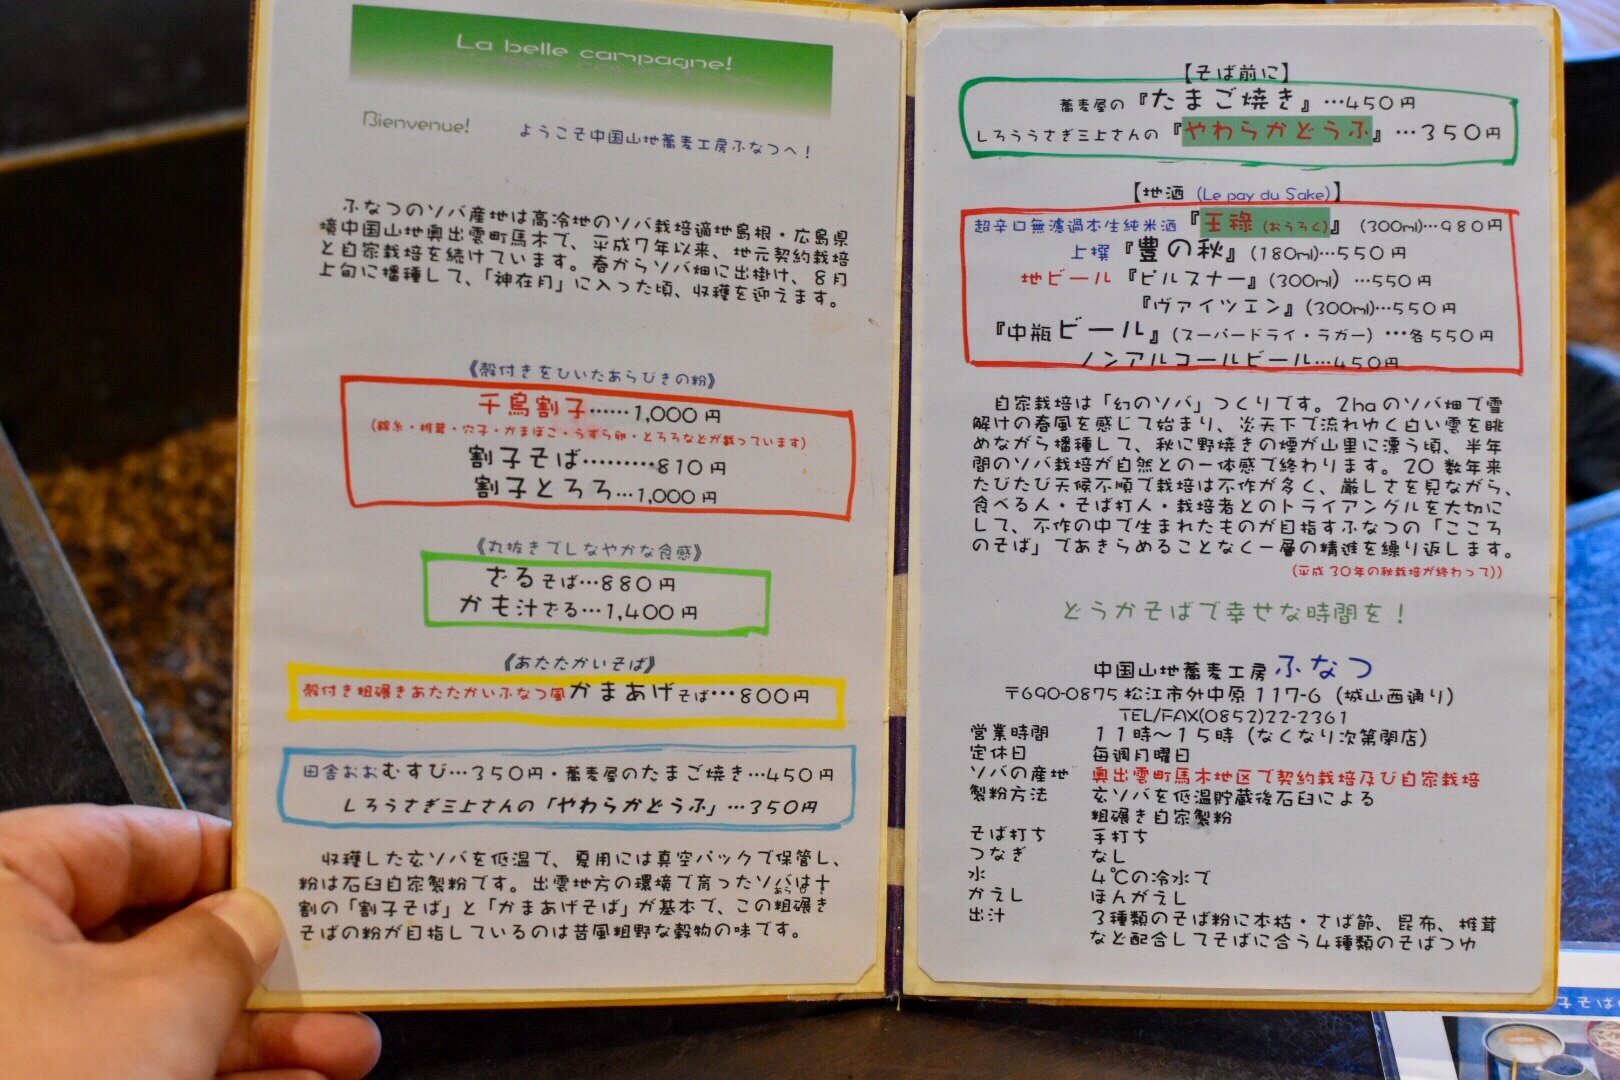 La belle campagne!
Bienvenue!
ようこそ中国山地蕎麦工房ふなつへ!
ふなつのソバ産地は高冷地のソバ栽培適地島根・広島県
境中国山地奥出雲町馬木で、平成7年以来、地元契約栽培
と自家栽培を続けています。春からソバ畑に出掛け、8月
上旬に播種して、「神在月」に入った頃、収穫を迎えます。
《殻付きをひいたあらびきの粉》
千鳥割子……1,000円
(錦糸・椎茸・穴子・かまぼこ・うずら卵・とろろなどが載っています)
割子そば………810円
割子とろろ…1,000円
《丸抜きでしなやかな食感》
ざるそば…880円
かも汁ざる…1,400円
《あたたかいそば》
殻付き粗碾きあたたかいふなつ風かまあげそば…800円
田舎おおむすび…350円・蕎麦屋のたまご焼き…450円
しろうさぎ三上さんの「やわらかどうふ」…350円
収穫した玄ソバを低温で、夏用には真空パックで保管し、
粉は石臼自家製粉です。出雲地方の環境で育ったソバは十
割の「割子そば」と「かまあげそば」が基本で、この粗碾き
そばの粉が目指しているのは昔風粗野な穀物の味です。
【そば前に】
蕎麦屋の『たまご焼き』…450円
しろううさぎ三上さんの『やわらかどうふ』…350円
【地酒 (Le pay du Sake)】
超辛口無濾過本生純米酒『王禄(おうろく)』 (300ml)…980円
上撰『豊の秋』(180ml)…550円
地ビール『ピルスナー』(300ml) …550円
『ヴァイツェン』(300ml)…550円
『中瓶ビール』(スーパードライ・ラガー) …各550円
ノンアルコールビール…450円
自家栽培は「幻のソバ」つくりです。2haのソバ畑で雪
解けの春風を感じて始まり、炎天下で流れゆく白い雲を眺
めながら播種して、秋に野焼きの煙が山里に漂う頃、半年
間のソバ栽培が自然との一体感で終わります。20数年来
たびたび天候不順で栽培は不作が多く、厳しさを見ながら、
食べる人・そば打人・栽培者とのトライアングルを大切に
して、不作の中で生まれたものが目指すふなつの「こころ
のそば」であきらめることなく一層の精進を繰り返します。
(平成30年の秋栽培が終わって))
どうかそばで幸せな時間を!
中国山地蕎麦工房ふなつ
〒690-0875松江市外中原117-6(城山西通り)
TEL/FAX(0852)22-2361
営業時間 11時~15時(なくなり次第閉店)
定休日 毎週月曜日
ソバの産地 奥出雲町馬木地区で契約栽培及び自家栽培
製粉方法 玄ソバを低温貯蔵後石臼による
粗碾き自家製粉
そば打ち 手打ち
つなぎ なし
水 4℃の冷水で
かえし ほんがえし
出汁 3種類のそば粉に本枯・さば節、昆布、椎茸
など配合してそばに合う4種類のそばつゆ